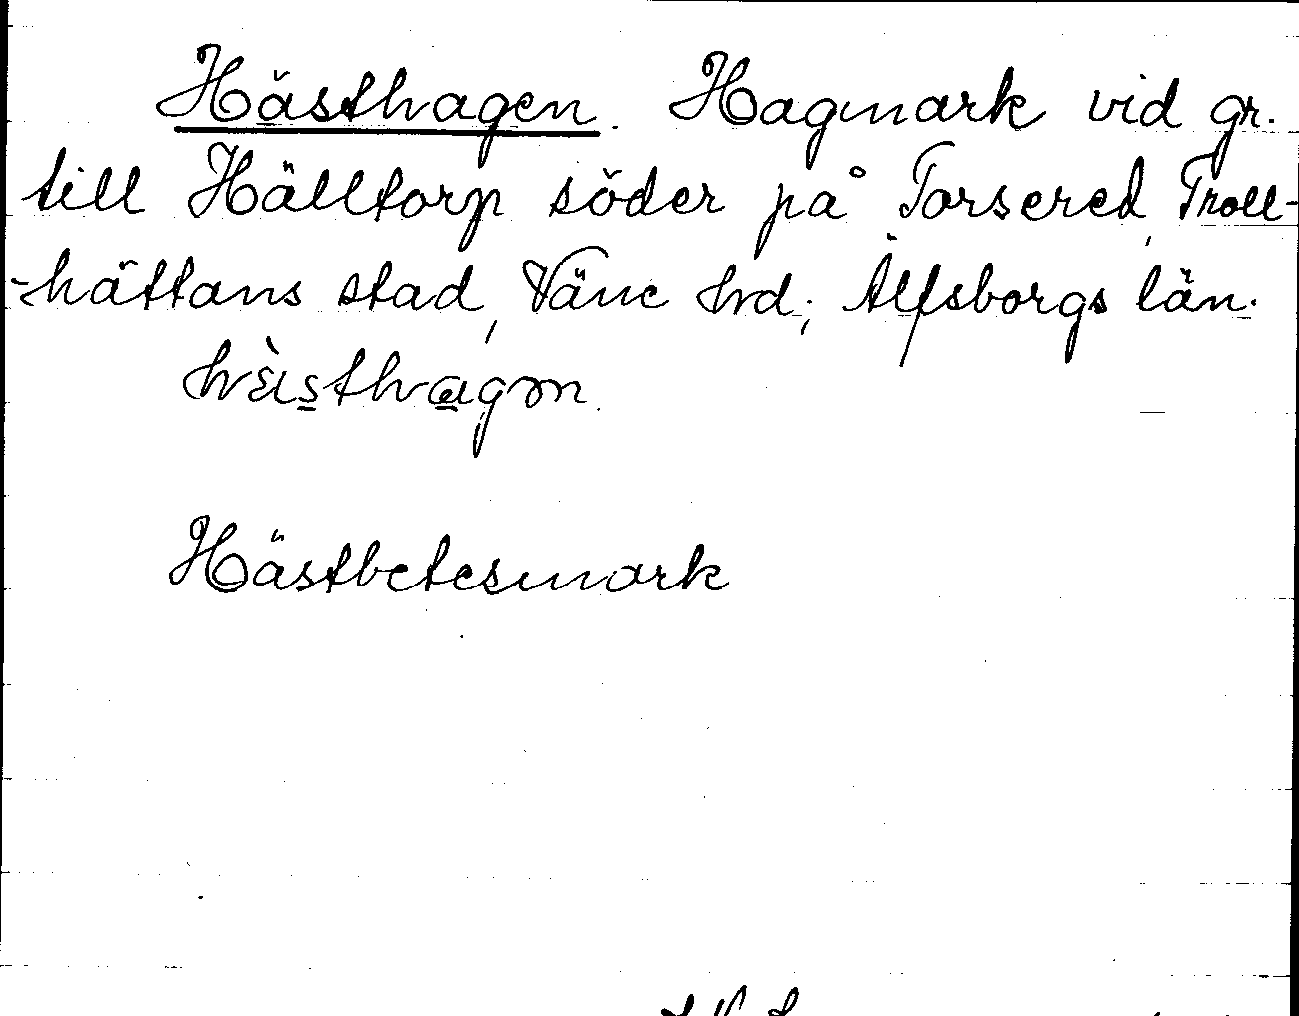 Hästhagen. Hagmark vid gr.
till Hälltorp söder på Torsered, Troll-
-hättans stad, Väne hrd; Älfsborgs län.
Hästbetesmark